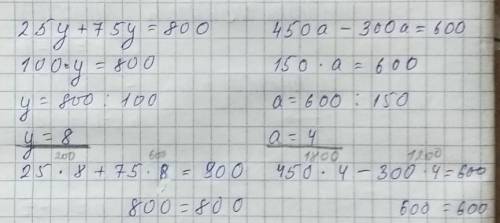 25y + 75y = 800
100·y = 800
y = 800 : 100
y = 8
200 600
25 · 8 + 75 · 8 = 900
800 = 800
450a − 300a = 600
150 · a = 600
a = 600 : 150
a = 4
1800 1200
450 · 4 − 300 · 4 = 600
600 = 600